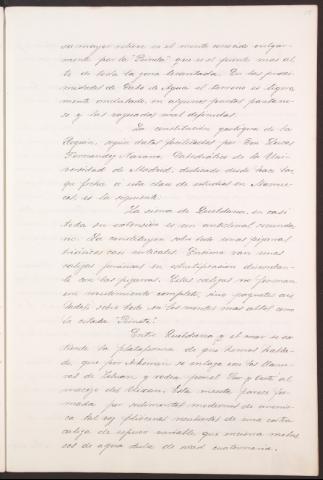 su mayor relieve es el monte conocido vulgar-
mente por la "Puneta" que es el punto mas al-
to de toda la zona levantada. En las proxi-
midades de Cabo de Agua el terreno es ligera-
mente ondulado, en algunos puntos pantano-
so y las vaguadas mal definidas.
La constitución geológica de la
Región, según datos facilitados por Don Lucas
Fernandez Navarro, Catedrático de la Uni-
versidad de Madrid, dedicado desde hace lar-
ga fecha a esta clase de estudios en Marrue-
cos, es la siguiente:
La sierra de Quebdana, en casi
toda su extensión es un anticlinal secunda-
rio. La constituyen sobre todo unas pizarras
casi verticales. Encima van unas
calizas jurásicas en estratificación discordan-
te con las pizarras. Estas calizas no forman
un revestimiento completo, sino paquetes ais-
lados, sobre todo en los montes mas altos como
la citada "Puneta".
Entre Quebdana y el mar se ex-
tiende la plataforma de que hemos habla-
do, que por se enlaza con las llanu-
ras de Zeluan, y rodea por el Sur y Oeste al
macizo del Uixan. Esta meseta parece for-
mada por sedimentos modernos de arenis-
ca tal vez pliocenos recubiertos de una costra
caliza de espesor variable que encierra molus-
cos de agua dulce de edad cuaternaria.